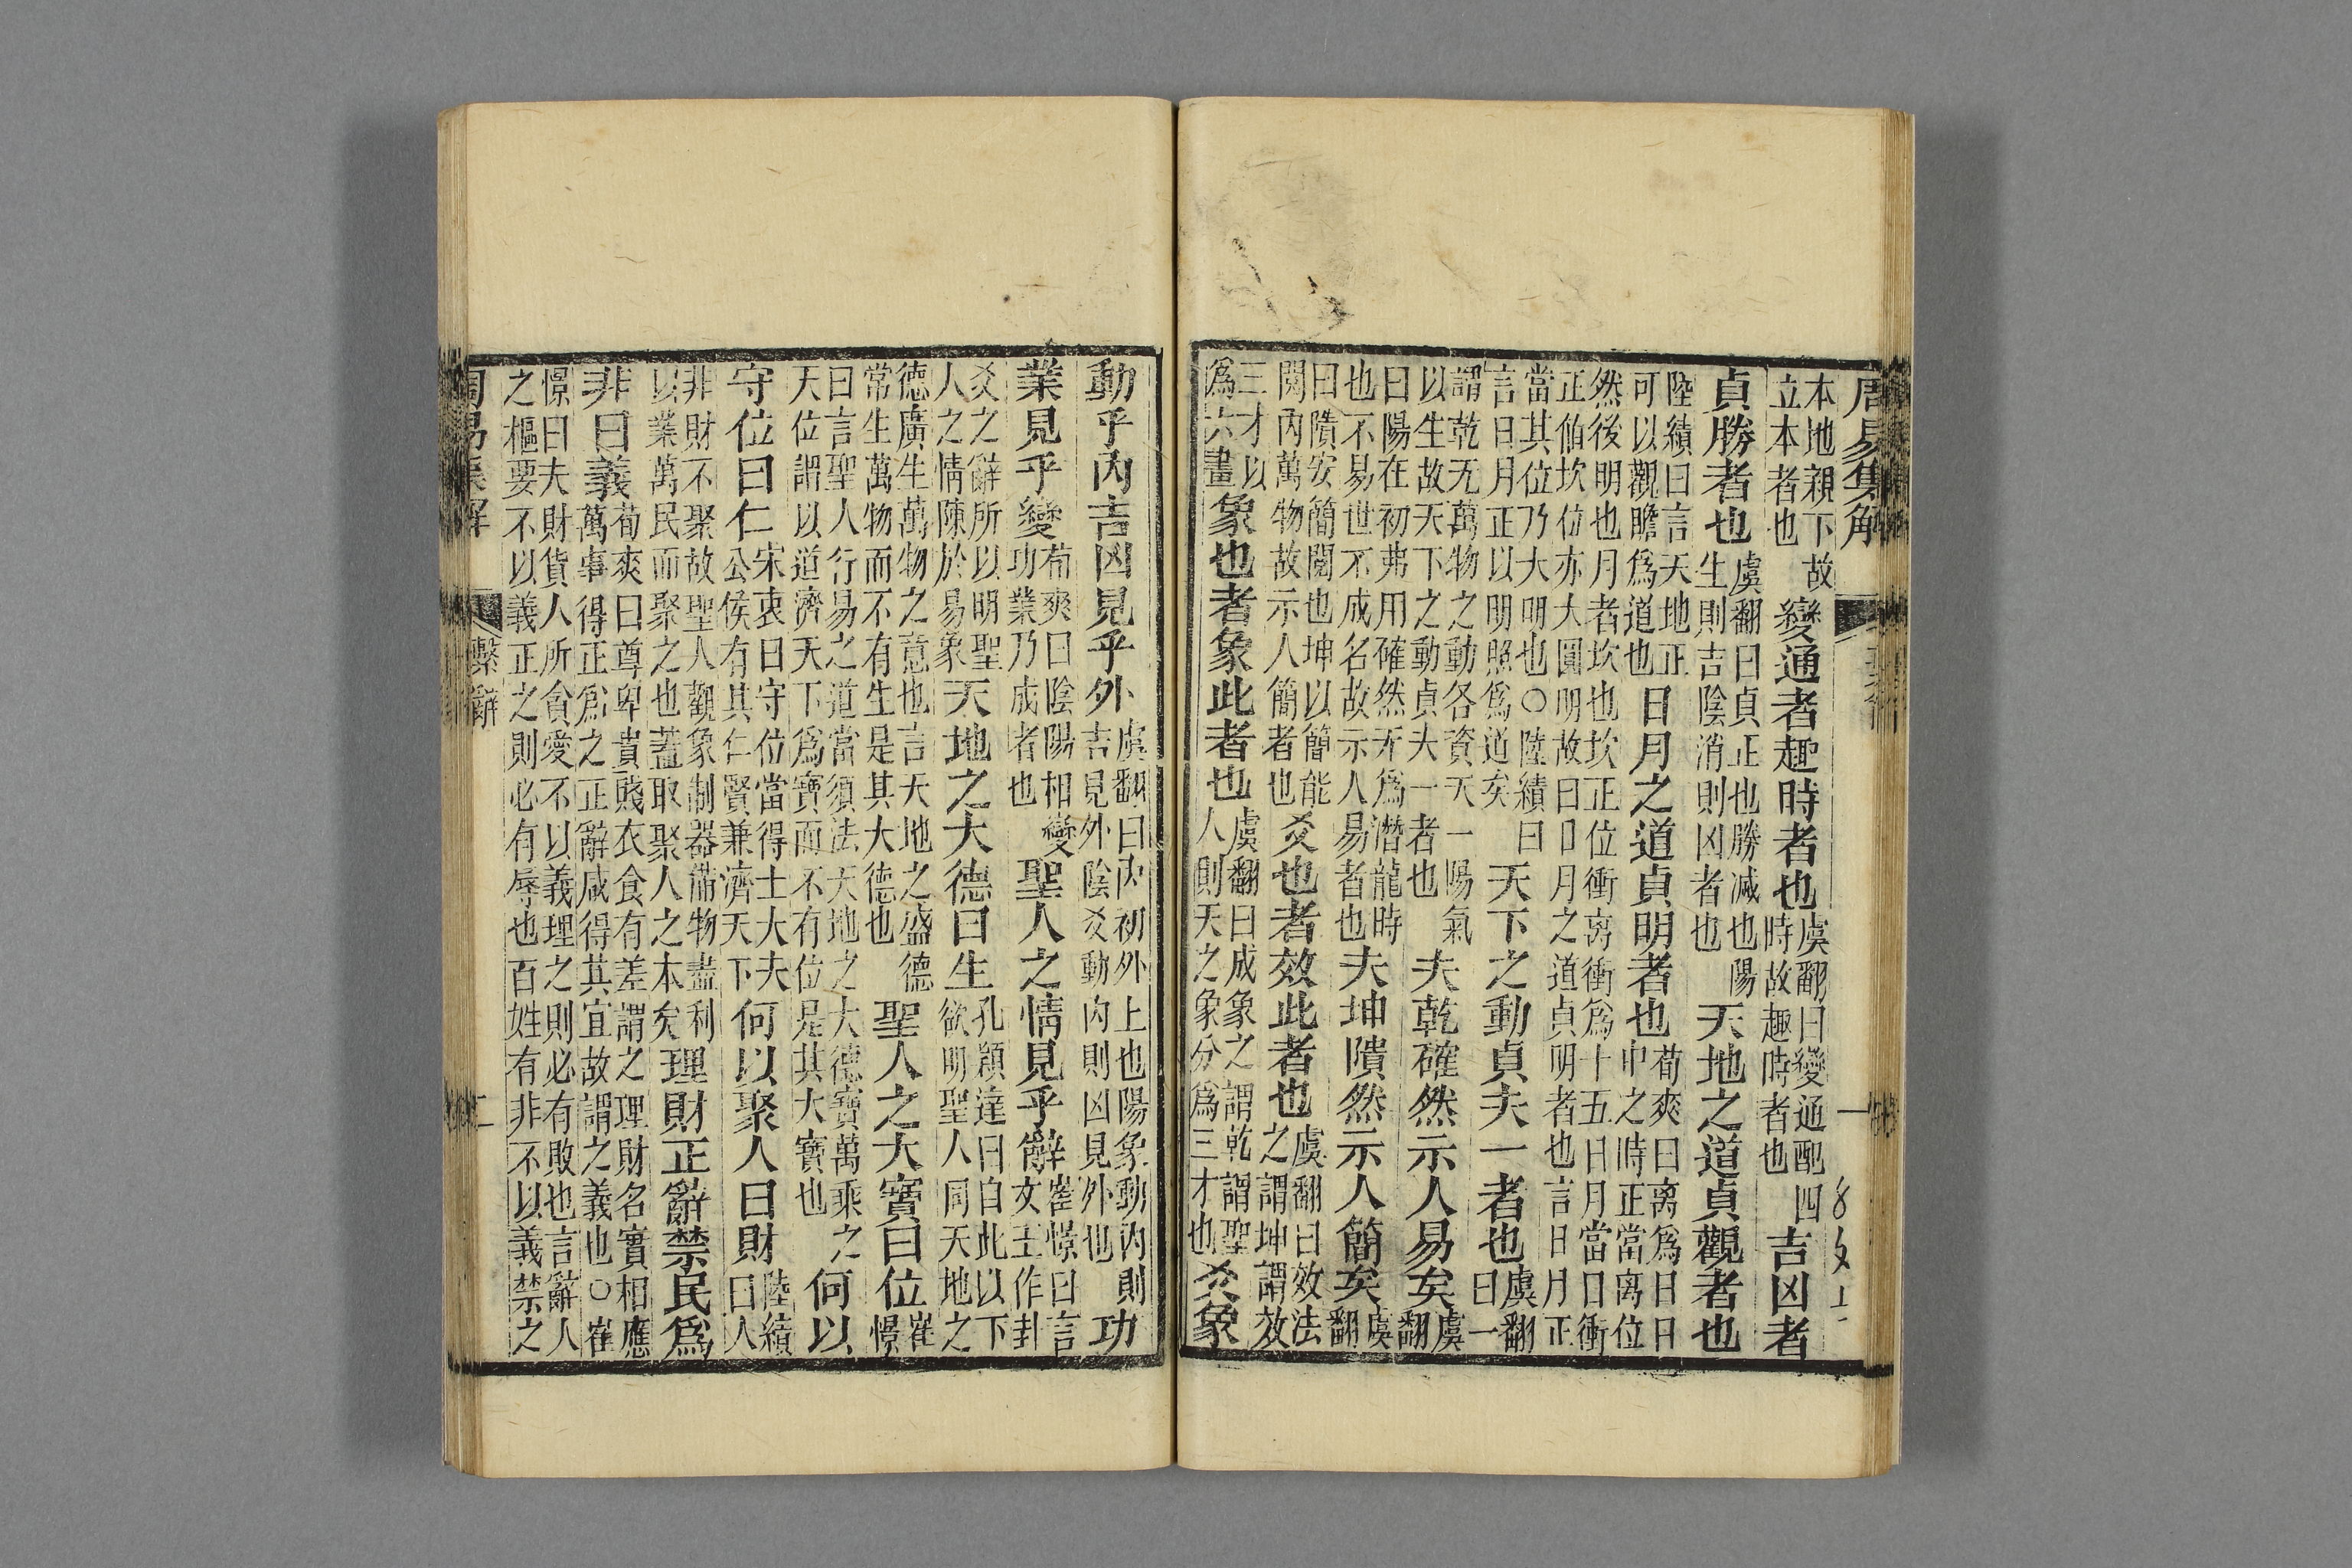 周易集解 繫辭 一
本地親下故立本者也變通者趣時者也虞翻曰變通配四時故趣時者也吉凶者
貞勝者也虞翻曰貞正也勝减也陽生則吉陰消則凶者也天地之道貞觀者也
陸績曰言天地正可以觀瞻爲道也日月之道貞明者也荀爽曰离爲日日中之時正當离位
然後明也月者坎也坎正位衝离衝爲十五日月當日衝正値坎位亦大圓明故曰日月之道貞明者也言日月正
當其位乃大明也○陸績曰言日月正以明照爲道矣天下之動貞夫一者也虞翻曰一
謂乾无萬物之動各資天一陽氣以生故天下之動貞夫一者也夫乾確然示人易矣虞翻
曰陽在初弗用確然无爲潛龍時也不易世不成名故示人易者也夫坤隤然示人簡矣虞翻
曰隤安簡閱也坤以簡能閱內萬物故示人簡者也爻也者效此者也虞翻曰效法之謂坤謂效
三才以爲六畫象也者象此者也虞翻曰成象之謂乾謂聖人則天之象分爲三才也爻象
動乎內吉凶見乎外虞翻曰內初外上也陽象動內則吉見外陰爻動內則凶見外也功
業見乎變荀爽曰陰陽相變功業乃成者也聖人之情見乎辭崔憬曰言文王作卦
爻之辭所以明聖人之情陳於易象天地之大德曰生孔穎達曰自此以下欲明聖人同天地之
德廣生萬物之意也言天地之盛德常生萬物而不有生是其大德也聖人之大寶曰位崔憬
曰言聖人行易之道當須法天地之大德寶萬乘之天位謂以道濟天下爲寶而不有位是其大寶也何以
守位曰仁宋衷曰守位當得士大夫公侯有其仁賢兼濟天下何以聚人曰財陸績曰人
非財不聚故聖人觀象制器備物盡利以業萬民而聚之也蓋取聚人之本矣理財正辭禁民爲
非曰義荀爽曰尊卑貴賤衣食有差謂之理財名實相應萬事得正爲之正辭咸得其宜故謂之義也○崔
憬曰夫財貨人所貪愛不以義理之則必有敗也言辭人之樞要不以義正之則必有辱也百姓有非不以義禁之
周易集解 繫辭 二